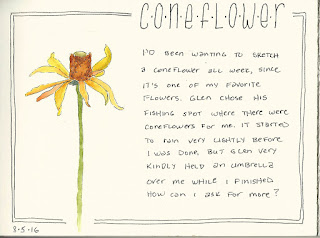 C·O·N·E·F·L·O·W·E·R
I'D BEEN WANTING TO SKETCH
A CONEFLOWER ALL WEEK, SINCE
IT'S ONE OF MY FAVORITE
FLOWERS. GLEN CHOSE HIS
FISHING SPOT WHERE THERE WERE
CONEFLOWERS FOR ME. IT STARTED
TO RAIN VERY LIGHTLY BEFORE
I WAS DONE, BUT GLEN VERY
KINDLY HELD AN UMBRELLA
OVER ME WHILE I FINISHED
HOW CAN I ASK FOR MORE?
8·5·16